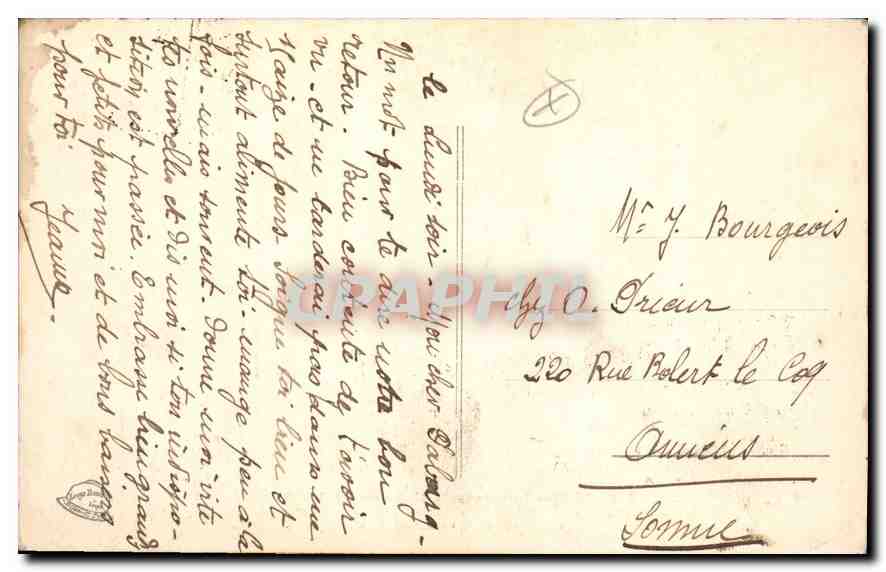 le Lundi soir - Mon cher
Un mot pour te dire notre bon
retour. Bien contente de t'avoir
vu - et ne tarderai pas dans une
15aine de jours. Soigne toi bien et
surtout alimente toi - mange peu à la
fois - mais souvent. Donne moi vite
tes nouvelles et dis moi si ton indispo-
sition est passée. Embrasse bien grands
et petits pour moi et de bons baisers
pour toi
Jeanne.
Mr J. Bourgeois
chez O. Prieur
220 Rue Robert le Coq
Amiens
Somme
CPAPHIL